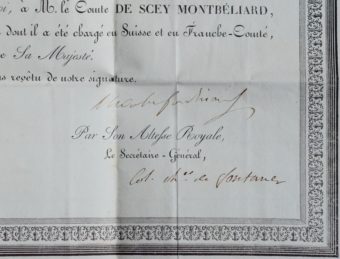 , à M. le Comte DE SCEY MONTBÉLIARD,
dont il a été chargé en Suisse et en Franche-Comté,
Sa Majesté.
revêtu de notre signature.
Par Son Altesse Royale,
Le Secrétaire-Général,
de